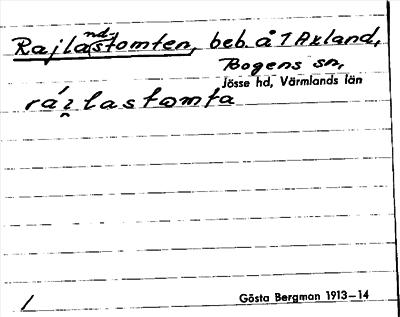 Rajla(nd)stomten, beb. å 1 Axland,
Bogens sn,
Jösse hd, Värmlands län
rái̯lastomta
/
Gösta Bergman 1913–14